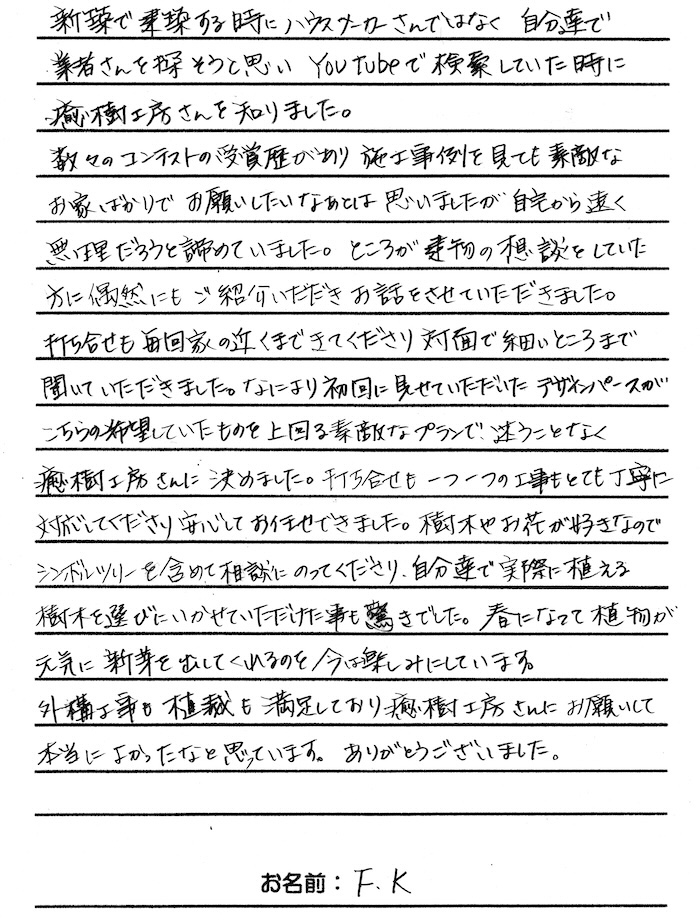 新築で建築する時にハウスメーカーさんではなく 自分達で
業者さんを探そうと思い YouTubeで検索していた時に
癒樹工房さんを知りました。
数々のコンテストの受賞歴があり 施工事例を見ても素敵な
お家ばかりで お願いしたいなあとは 思いましたが 自宅から遠く
無理だろうと諦めていました。ところが 建物の相談をしていた
方に偶然にもご紹介いただき お話をさせていただきました。
打ち合せも毎回家の近くまできてくださり 対面で細いところまで
聞いていただきました。なにより初回に見せていただいた デザインパースが
こちらの希望していたものを上回る素敵なプランで、迷うことなく
癒樹工房さんに 決めました。打ち合せも 一つ一つの工事もとても丁寧に
対応してくださり 安心して お任せできました。樹木やお花が好きなので
シンボルツリーを含めて相談にのってくださり、自分達で実際に植える
樹木を選びにいかせていただけた事も驚きでした。春になって植物が
元気に新芽を出してくれるのを今は楽しみにしています。
外構工事も 植栽も 満足しており 癒樹工房さんに お願いして
本当に よかったなと思っています。ありがとうございました。
お名前：F.K